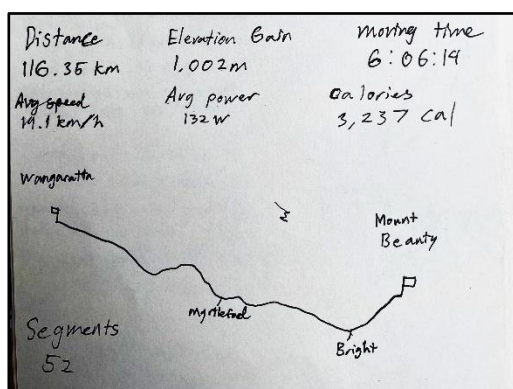 Distance
116.35 km
Elevation Gain
1,002m
Moving time
6:06:14
Avg speed
19.1 km/h
Avg power
132 W
Calories
3,237 Cal
Wangaratta
Mount
Beauty
Myrtleford
Bright
Segments
52